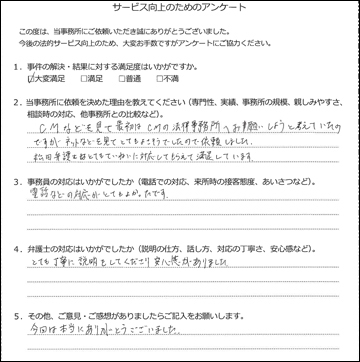 サービス向上のためのアンケート
この度は、当事務所にご依頼いただき誠にありがとうございました。
今後の法的サービス向上のため、大変お手数ですがアンケートにご協力ください。
1．事件の解決・結果に対する満足度はいかがですか。
☑大変満足　□満足　□普通　□不満
2．当事務所に依頼を決めた理由を教えてください（専門性、実績、事務所の規模、親しみやすさ、
相談時の対応、他事務所との比較など）。
CMなどを見て最初はCMの法律事務所へお願いしようと考えていたの
ですが ネットなどを見てとてもよさそうでしたので依頼しました。
松田弁護士はとてもていねいに対応してもらえて満足しています。
3．事務員の対応はいかがでしたか（電話での対応、来所時の接客態度、あいさつなど）。
電話などの対応がとてもよかったです。
4．弁護士の対応はいかがでしたか（説明の仕方、話し方、対応の丁寧さ、安心感など）。
とても丁寧に説明をしてくださり安心感がありました。
5．その他、ご意見・ご感想がありましたらご記入をお願いします。
今回は本当にありがとうございました。